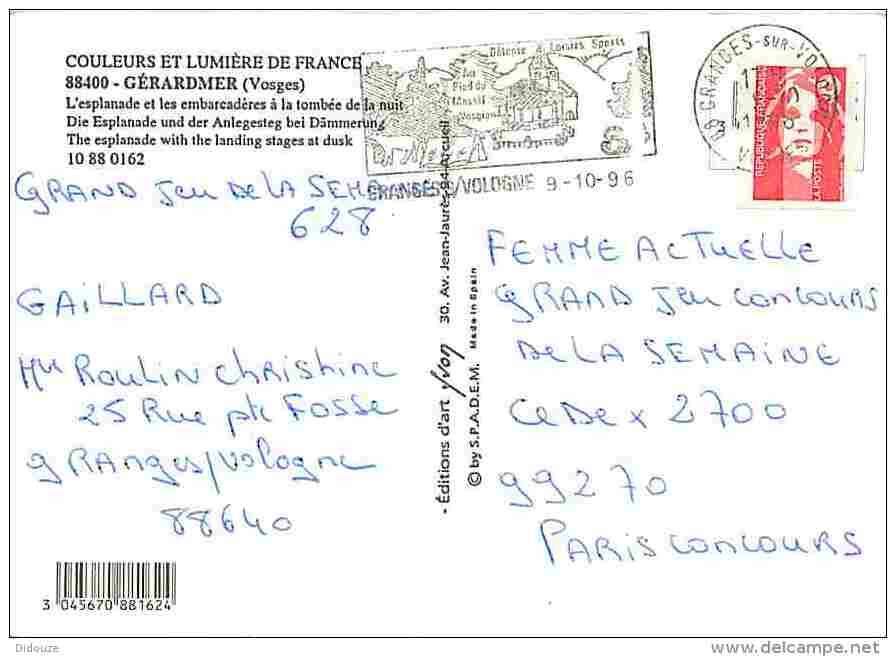 COULEURS ET LUMIÈRE DE FRANCE
88400 - GÉRARDMER (Vosges)
L'esplanade et les embarcadères à la tombée de la nuit
Die Esplanade und der Anlegesteg bei Dämmerung
The esplanade with the landing stages at dusk
10 88 0162
Détente & Loisirs Sports
Au
Pied du
Massif
Vosgien
GRANGES S/VOLOGNE 9-10-96
88 GRANGES-SUR-VOLOGNE
REPUBLIQUE FRANÇAISE
LA POSTE
GRAND JEU DE LA SEM
628
GAILLARD
Roulin Christine
25 Rue pte FOSSE
GRANGES/VOLOGNE
88640
- Éditions d'art Yvon 30, Av. Jean-Jaurès - 94 Arcueil
© by S.P.A.D.E.M. Made in Spain
FEMME ACTUELLE
GRAND JEU CONCOURS
DE LA SEMAINE
CEDEX 2700
99270
PARIS CONCOURS
3 045670 881624
Didouze
delcampe.net